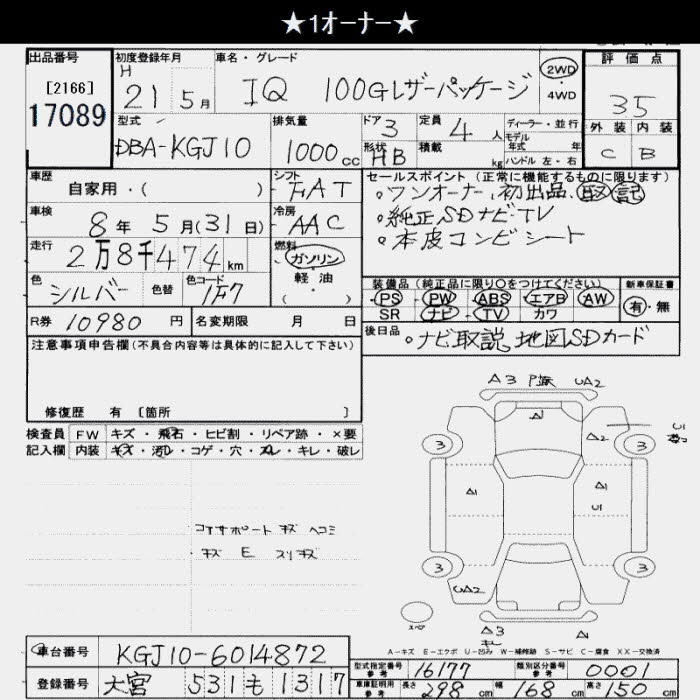 ★1オーナー★
出品番号
[2166]
17089
初度登録年月
H 21 5月
車名・グレード
IQ 100Gレザーパッケージ
2WD
・4WD
評価点
35
外装 内装
C B
型式
DBA-KGJ10
排気量
1000cc
ドア 3
形状 HB
定員 4人
積載 kg
ディーラー・並行
モデル年式 年式
ハンドル 左・右
車歴
自家用・( )
シフト
FAT
セールスポイント (正常に機能するものに限ります)
。ワンオーナー、初出品、取 記
。純正SDナビ・TV
。本皮コンビシート
車検
8年 5月(31日)
冷房
AAC
走行
2万8千474km
燃料
ガソリン
軽油
( )
色
シルバー
色替
色コード
1F7
装備品 (純正品に限り○をつけてください)
PS PW ABS エアB AW
SR ナビ TV カワ
新車保証書
有・無
R券 10980円
名変期限 月 日
後日品
。ナビ取説、地図SDカード
注意事項申告欄(不具合内容等は具体的に記入して下さい)
修復歴 有 〔箇所 〕
検査員 FW キズ・飛石・ヒビ割・リペア跡・×要
記入欄 内装 キズ・汚レ・コゲ・穴・スレ・キレ・破レ
コアサポート キズ ヘコミ
キズ E スリキズ
A3 UA2
A1
A2
3 3
A1 A1
U1
U1
3 3
UA2
A3
A-キズ E-エクボ U-凹み W-補修跡 S-サビ C-腐食 XX-交換済
車台番号 KGJ10-6014872
登録番号 大宮 531 も 1317
型式指定番号 参考 16177
類別区分番号 参考 0001
車庫証明用 参考 長さ 298cm 幅 168cm 高さ 150cm